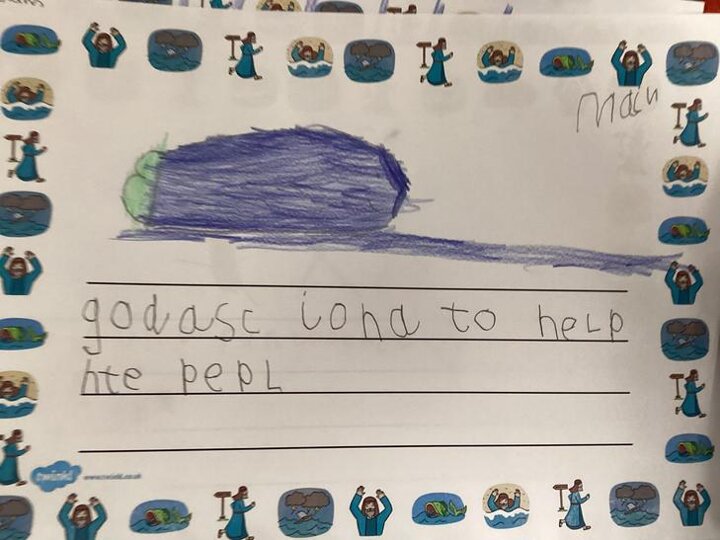 Main
godasc iona to help
hte pepL
twinkl www.twinkl.co.uk